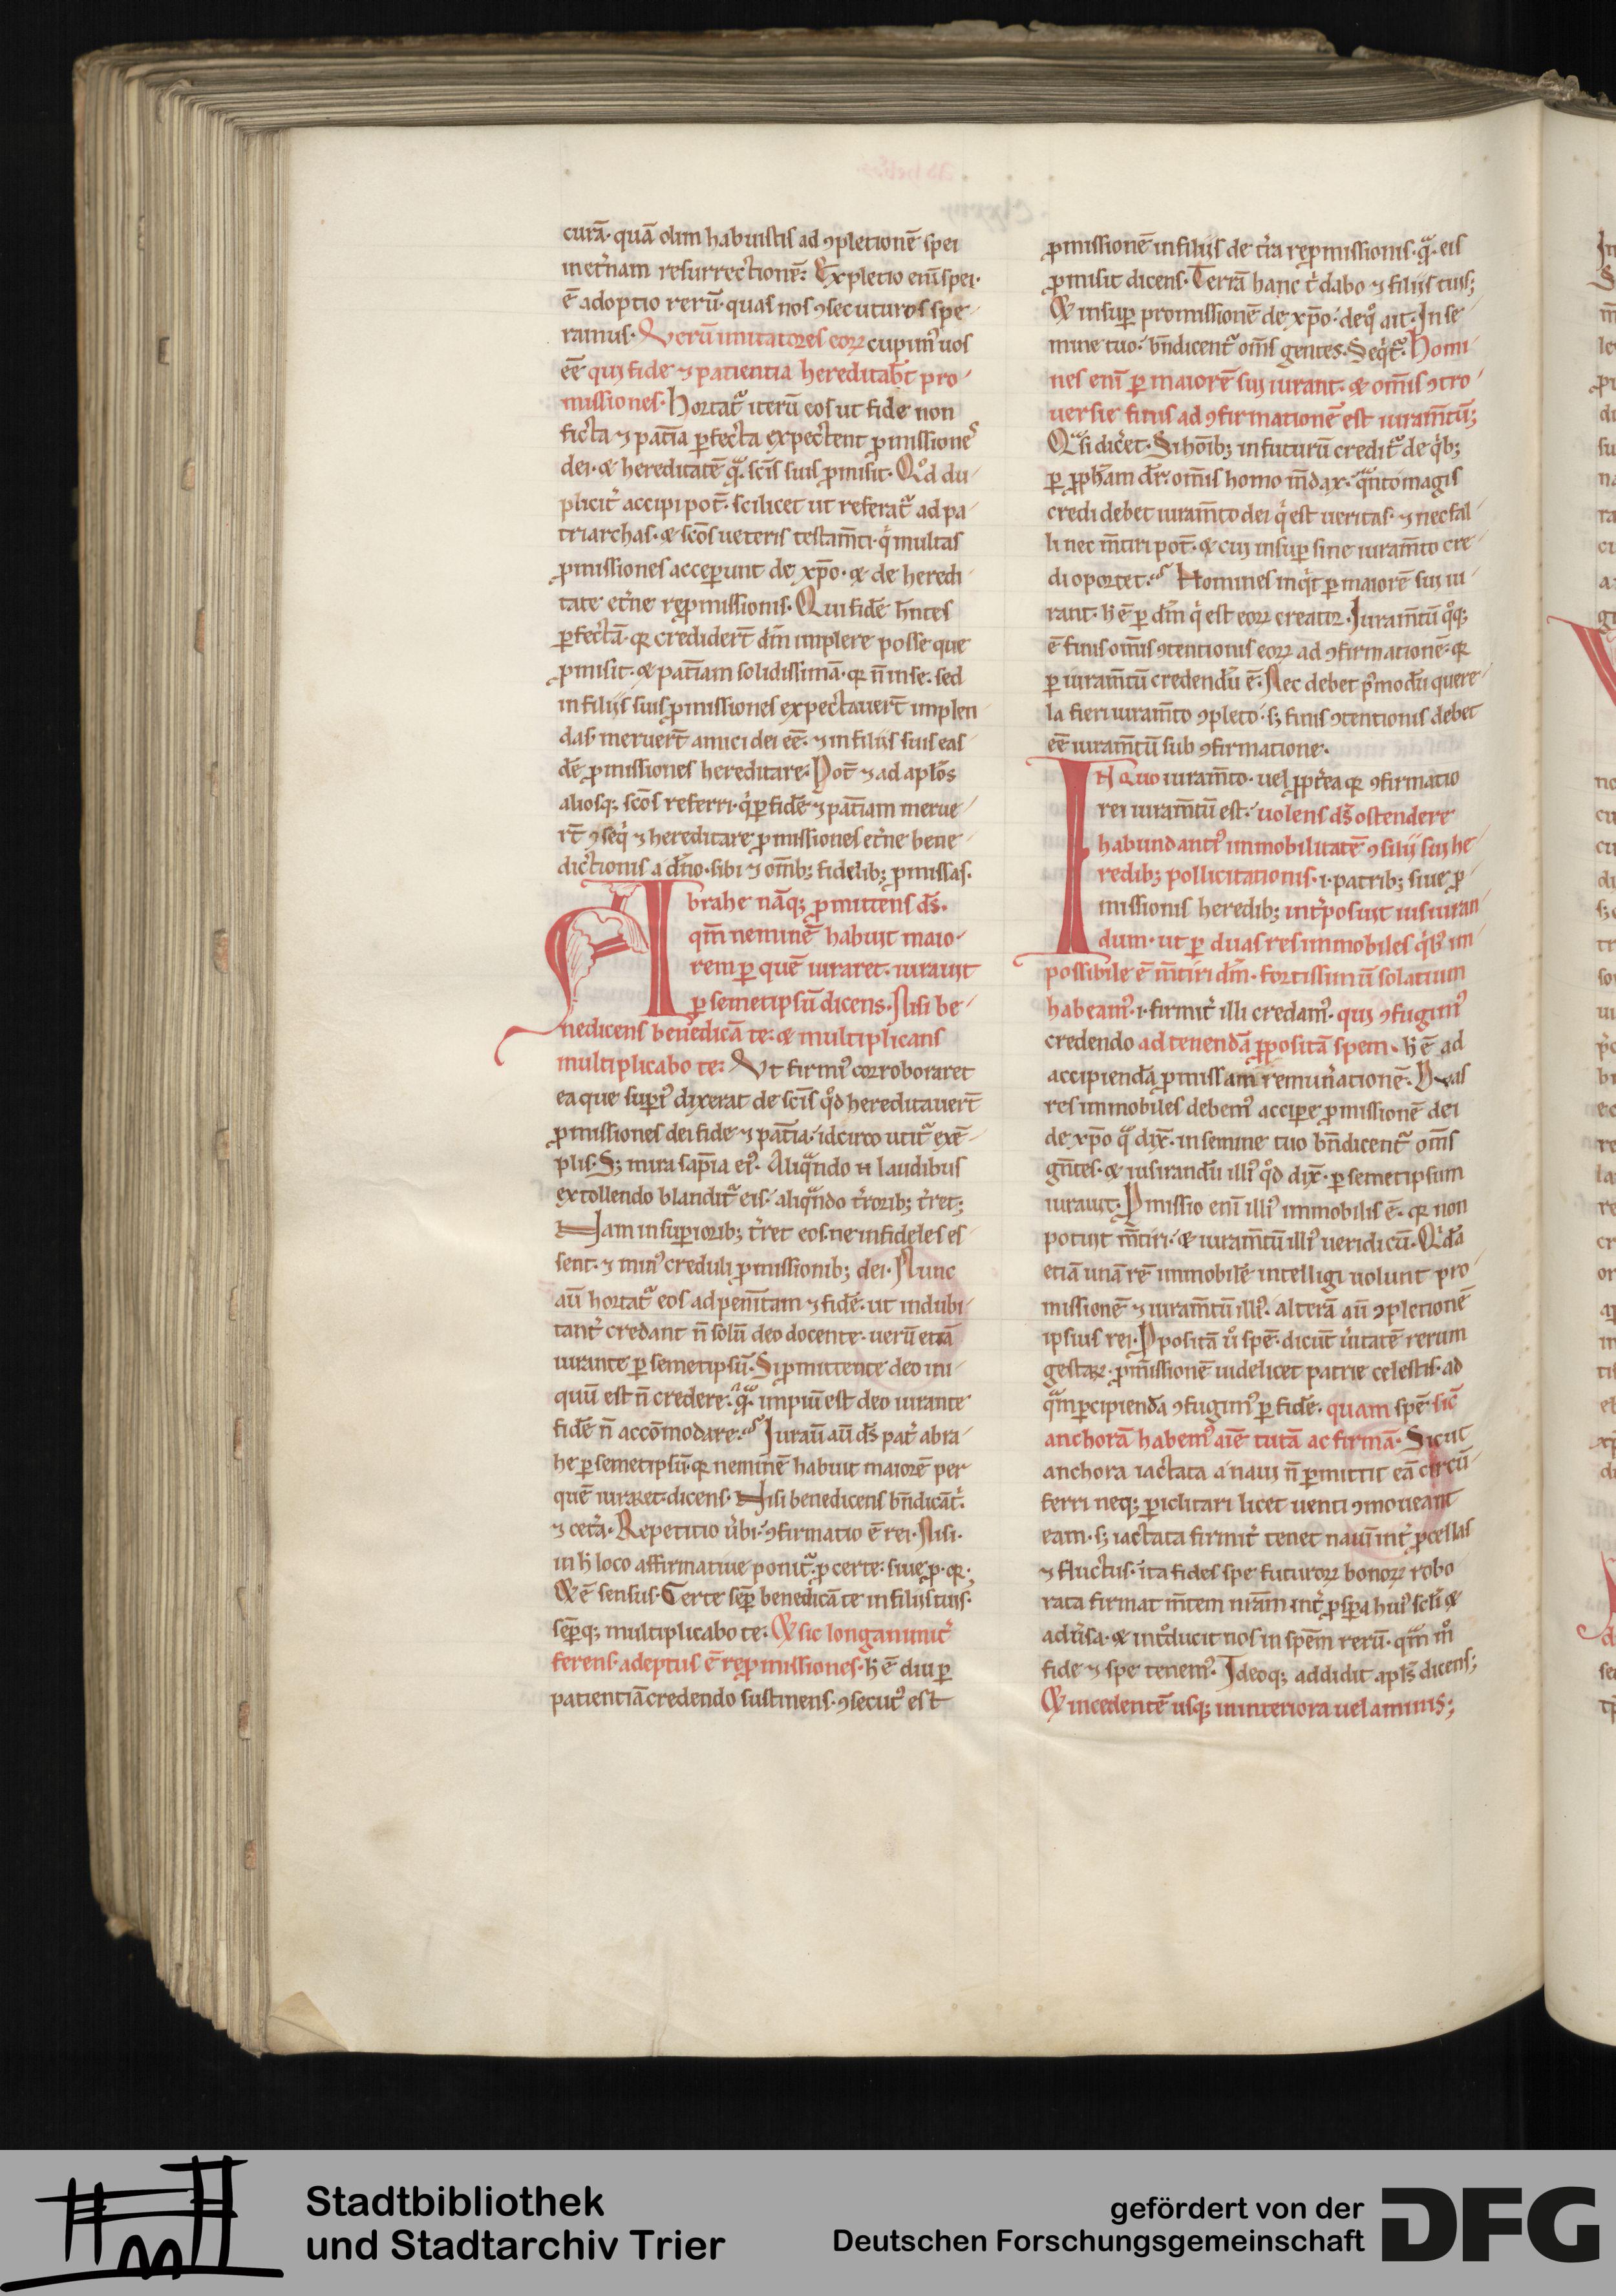 curā· quā olim habuistis ad ꝯpletionē spei
inet̉nam resurrectionē: Expletio eni᷒ spei·
ē adoptio rerū· quas nos ꝯsecuturos spe
ramus· Verū imitatores eoꝝ cupim᷒ uos
ēē qui fide ⁊ patientia hereditab̄t pro
missiones· Hortat᷑ iterū eos ut fide non
ficta ⁊ patīa ꝑfecta expectent ꝓmissiones
dei· & hereditatē q̄ sc̄is suis ꝓmisit· Qd̄ du
plicit̉ accipi pot̄· scilicet ut referat᷑ ad pa
triarchas· & sc̄os ueteris testam̄ti· q̉ multas
ꝓmissiones acceꝑunt de xp̄o· & de heredi
tate et̉ne reꝓmissionis· Qui fidē h̄ntes
ꝑfectā· qꝛ credidert̄ dm̄ implere posse que
ꝓmisit· & patīam solidissimā· qꝛ n̄ in se· sed
in filiis suis ꝓmissiones expectauert̄ implen
das· meruert̄ amici dei ēē· ⁊ in filiis suis eas
dē ꝓmissiones hereditare· Pot̄ ⁊ ad apl̄os
aliosq; sc̄os referri· q̉ ꝑ fidē ⁊ patīam merue
rt̄ ꝯseq̉ ⁊ hereditare ꝓmissiones et̉ne bene
dictionis a dn̄o· sibi ⁊ om̄ib; fidelib; ꝓmissas·
Abrahe nāq; ꝓmittens ds̄·
qm̄ neminē habuit maio
rem ꝑ quē iuraret· iurauit
ꝑ semetipsū dicens· Nisi be
nedicens benedicā te: & multiplicans
multiplicabo te: Vt firmi᷒ corroboraret
ea que supi᷒ dixerat de sc̄is qd̄ hereditauert̄
ꝓmissiones dei fide ⁊ patīa· idcirco utit᷑ exē
plis· S; mira sap̄ia ei᷒· Aliqn̄do n̄ laudibus
extollendo blandit᷑ eis· aliqn̄do t̉rorib; t̉ret;
Nam in supiorib; t̉ret eos· ne infideles es
sent· ⁊ min᷒ creduli ꝓmissionib; dei· Nunc
aū hortat᷑ eos ad penit̄am ⁊ fidē· ut indubi
tant̉ credant n̄ solū deo docente· uerū etiā
iurante ꝑ semetipsū· Si ꝓmittente deo ini
quū est n̄ credere· q̄ impiū est deo iurante
fidē n̄ accōmodare· Iurau̅ aū ds̄ pat̉ abra
he ꝑ semetipsū· qꝛ neminē habuit maiorē per
quē iuraret dicens· Nisi benedicens bn̄dicā t̉·
⁊ cet̉a· Repetitio u̓bi· ꝯfirmatio ē rei· Nisi·
in h̄ loco affirmatiue ponit᷑· ꝓ certe· siue ꝓ· qꝛ·
& ē sensus· Certe semꝑ benedicā te in filiis tuis·
semꝑq; multiplicabo te: & sic longanimit̉
ferens· adeptus ē reꝓmissiones· h̄ ē diu ꝑ
patientiā credendo sustinens· ꝯsecut᷒ est
ꝓmissionē in filiis de t̉ra reꝓmissionis· q̄ eis
ꝓmisit dicens· Terrā hanc t̉ dabo ⁊ filiis tuis;
& insuꝑ promissionē de xp̄o· de q̊ ait· In se
mine tuo· bn̄dicent᷑ om̄s gentes· Seqt᷑· Homi
nes eni᷒ ꝑ maiorē sui iurant· & om̄is ꝯtro
uersie finis ad ꝯfirmationē est iuram̄tū;
Q̄si dic̉et· Si hoīb; in futurū credit᷑ de q̉b;
ꝑ ꝓph̄am dr̄· om̄is homo m̄dax· qn̄to magis
credi debet iuram̄to dei q̉ est ueritas· ⁊ nec fal
li nec m̄tiri pot̄· & cui insuꝑ sine iuram̄to cre
di oportet· Homines inq̉t ꝑ maiorē sui iu
rant· h̄ ē ꝑ dm̄ q̉ est eoꝝ creator· Iuram̄tū q̊q;
ē finis om̄is ꝯtentionis eoꝝ ad ꝯfirmationē· qꝛ
ꝑ iuram̄tū credendū ē· Nec debet p̉ modū quere
la fieri iuram̄to ꝯpleto· s; finis ꝯtentionis debet
ēē iuram̄tū sub ꝯfirmatione·
In quo iuram̄to· uel ꝓpt̉ea qꝛ ꝯfirmatio
rei iuram̄tū est· uolens ds̄ ostendere
habundanti᷒ immobilitatē ꝯsilii sui he
redib; pollicitationis· i· patrib; siue ꝓ
missionis heredib; int̉posuit iusiuran
dum· ut ꝑ duas res immobiles q̉b᷒ im
possibile ē m̄tiri dm̄· fortissimū solatium
habeam᷒· i· firmit̉ illi credam᷒· qui ꝯfugim᷒
credendo ad tenendā ꝓpositā spem· h̄ ē ad
accipiendā ꝓmissam remun̉ationē· Duas
res immobiles debem᷒ accipere ꝓmissionē dei
de xp̄o q̄ dix̄· in semine tuo bn̄dicent᷑ om̄s
gn̄tes· & iusiurandū illi᷒ qd̄ dix̄· ꝑ semetipsum
iurauit· Ꝓmissio eni᷒ illi᷒ immobilis ē· qꝛ non
potuit m̄tiri· & iuram̄tū illi᷒ ueridicū· Q̉dā
etiā unā rē immobilē intelligi uolunt pro
missionē ⁊ iuram̄tū illi᷒· alterā aū ꝯpletionē
ipsius rei· Ꝓpositā u̓ spē· dicūt u̓itatē rerum
gestaꝝ· ꝓmissionē uidelicet patrie celestis· ad
q̄m ꝑcipiendā ꝯfugim᷒ ꝑ fidē· quam spē sic̄
anchorā habem᷒ aīe tutā ac firmā· Sicut
anchora iactata a naui n̄ ꝑmittit eā circū
ferri neq; ꝑiclitari licet uenti ꝯmoueant
eam· s; iactata firmit̉ tenet nauī int̉ ꝓcellas
⁊ fluctus· ita fides spe futuroꝝ bonoꝝ robo
rata firmat m̄tem nr̄am int̉ ꝓspa hui᷒ sc̄li &
adu̓sa· & int̊ducit nos in spēm rerū· qm̄ m̊
fide ⁊ spe tenem᷒· Ideoq; addidit apl̄s dicens;
& incedentē usq; in interiora uelaminis;
Stadtbibliothek
und Stadtarchiv Trier
gefördert von der
Deutschen Forschungsgemeinschaft
DFG